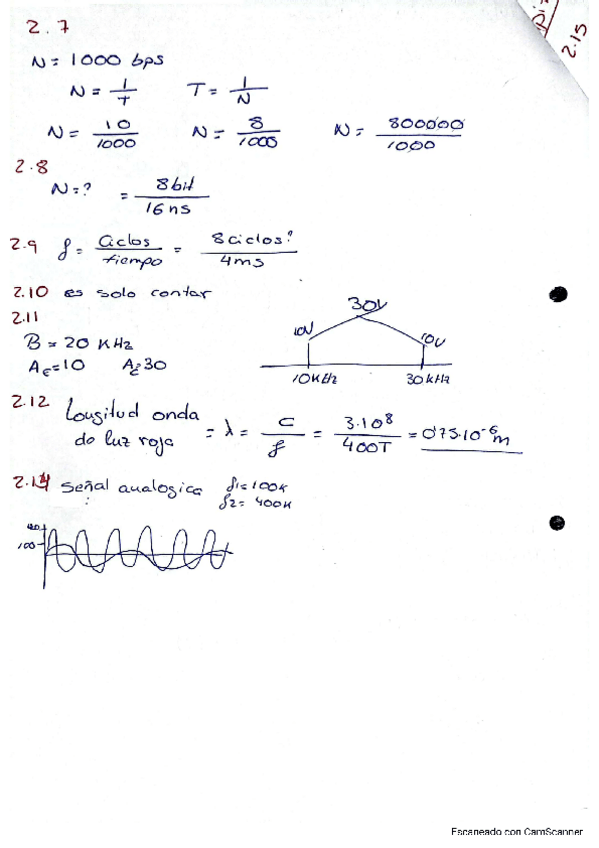 2.15
2.7
N = 1000 bps
N = 1/T T = 1/N
N = 10/1000 N = 8/1000 N = 800000/1000
2.8
N = ? = 8bit/16 ns
2.9 f = Ciclos/tiempo = 8 ciclos?/4ms
2.10 es solo contar
2.11
30V
10V 10V
B = 20 KHz
Ac=10 Ac=30
10KHz 30kHz
2.12 Longitud onda
de luz roja = λ = c/f = 3·10⁸/400T = 0'75·10⁻⁶m
2.14 Señal analogica f1=100K
f2= 400K
100
Escaneado con CamScanner